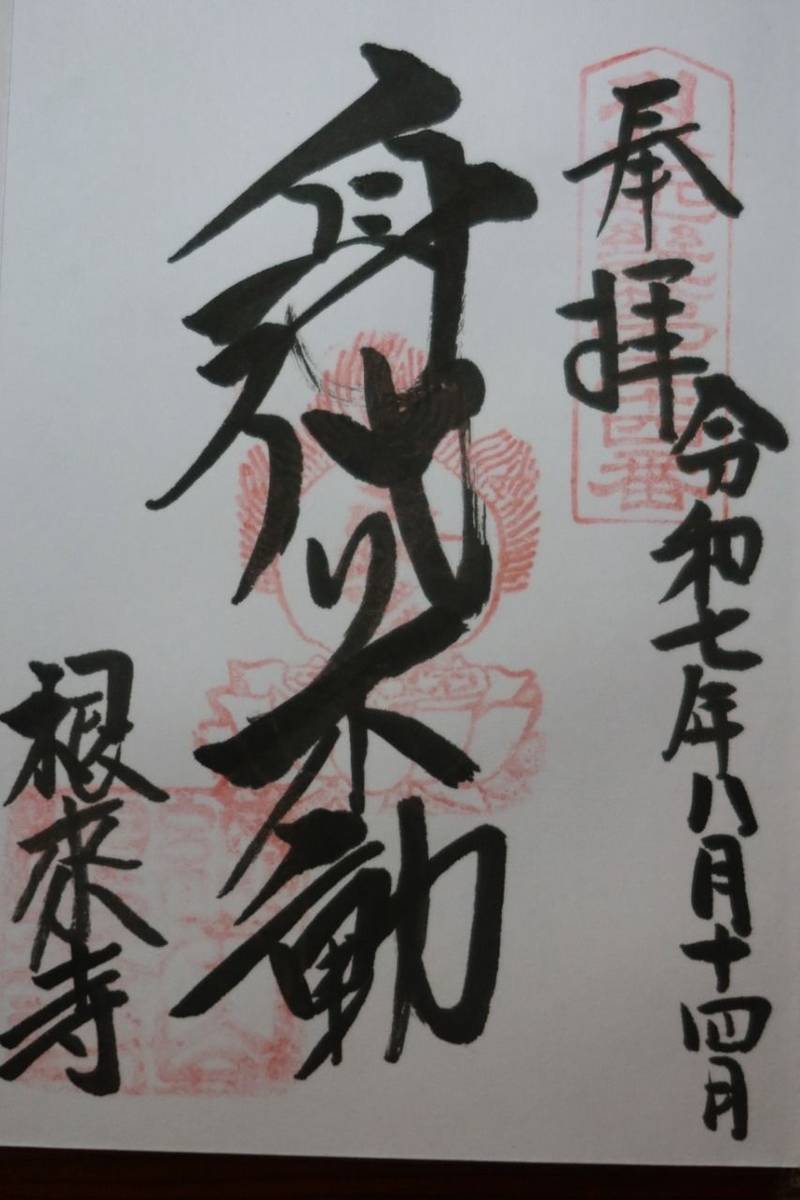 奉拝
令和七年八月十四日
身代り不動
根来寺